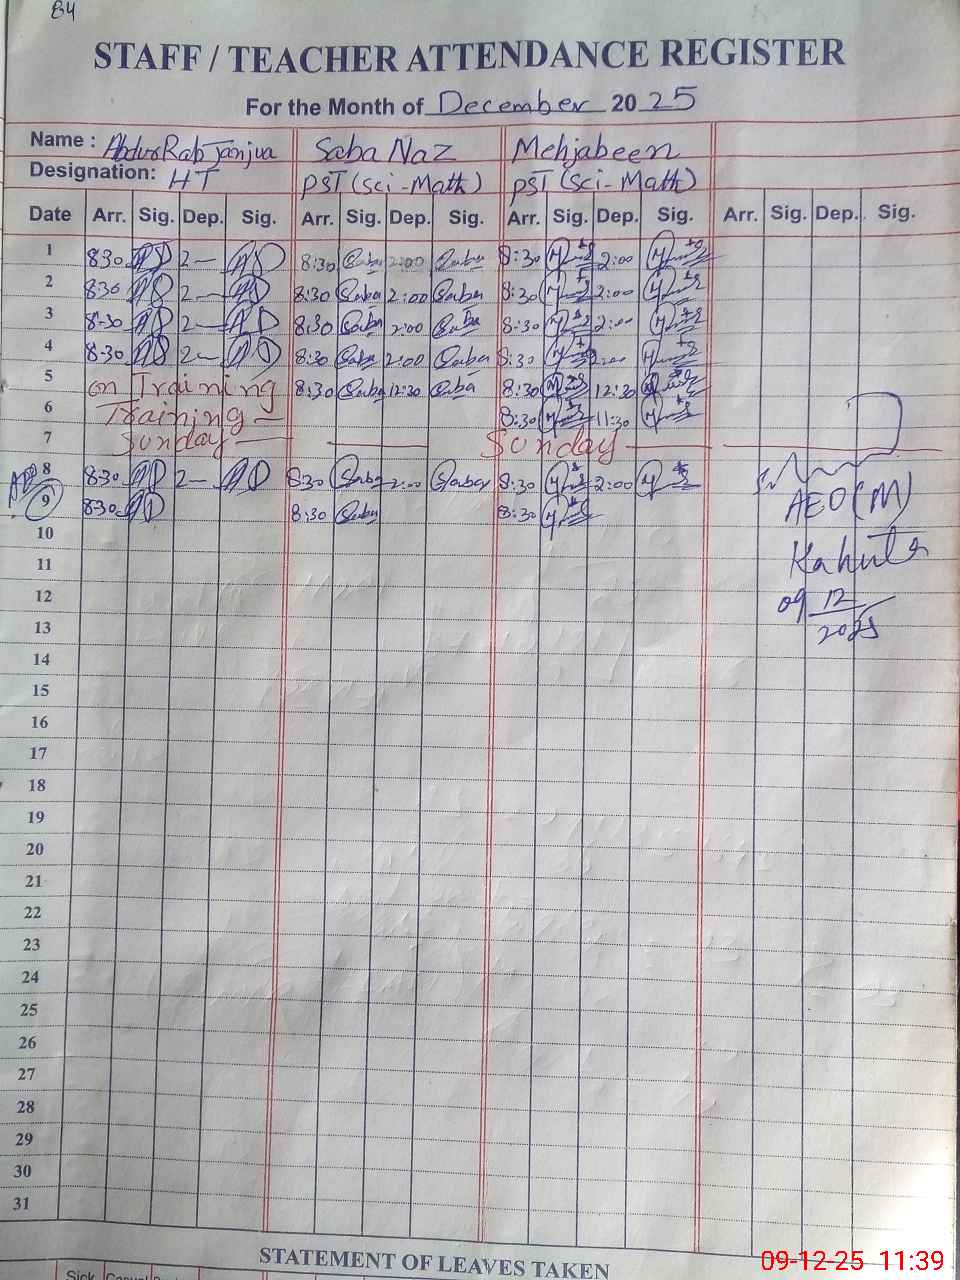 84
STAFF / TEACHER ATTENDANCE REGISTER
For the Month of December 2025
Name : Abdur Rab Janjua Saba Naz Mehjabeen
Designation: HT PST (Sci-Math) PST (Sci-Math)
Date Arr. Sig. Dep. Sig. Arr. Sig. Dep. Sig. Arr. Sig. Dep. Sig. Arr. Sig. Dep. Sig.
1 8:30 2— 8:30 Saba 2:00 Saba 8:30 2:00
2 8:30 2— 8:30 Saba 2:00 Saba 8:30 2:00
3 8-30 2— 8:30 Saba 2:00 Saba 8-30 2:00
4 8-30 2— 8:30 Saba 2:00 Saba 8:30 2:00
5 on Training 8:30 Saba 12:30 Saba 8:30 12:30
6 Training — 8:30 11:30
7 Sunday — Sunday —
8 8:30 2— 8:30 Saba 2:00 Saba 8:30 2:00
9 8:30 8:30 Saba 8:30
AEO (M)
10
11 Kahuta
12 09 12
13 2025
14
15
16
17
18
19
20
21
22
23
24
25
26
27
28
29
30
31
STATEMENT OF LEAVES TAKEN
Sick Casual
09-12-25 11:39